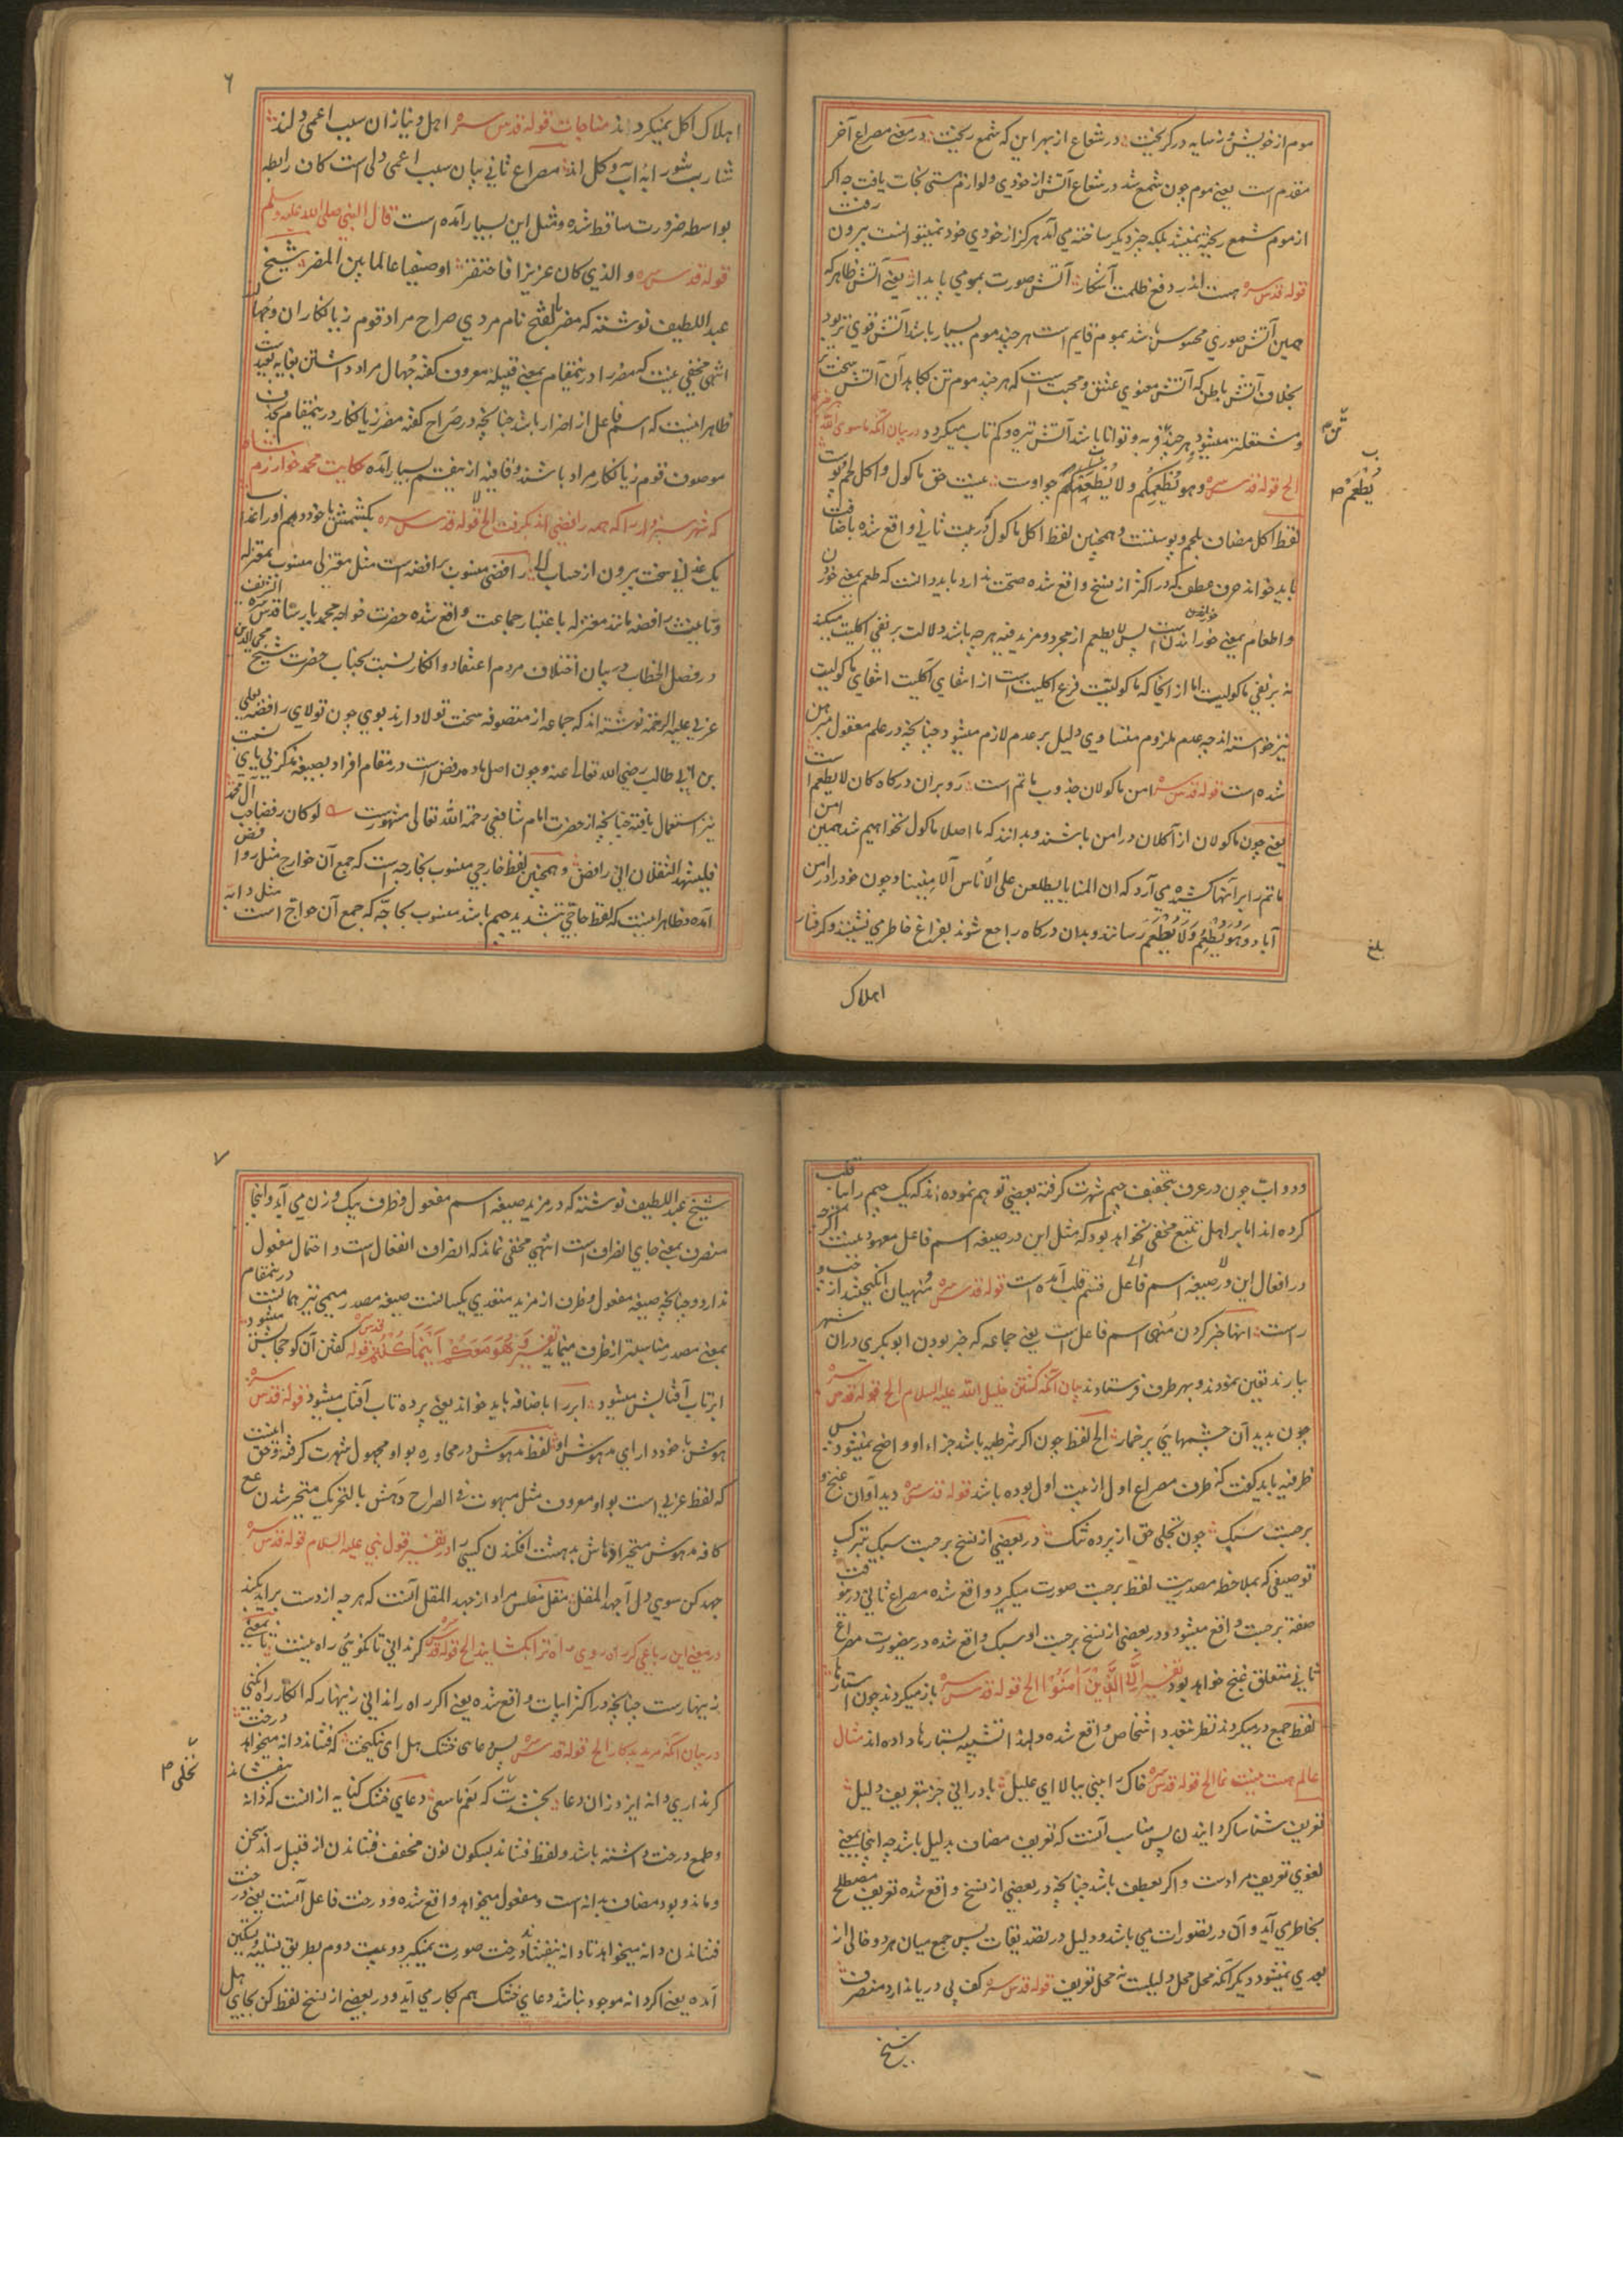 موم از خویش و ز سایه در گریخت در شعاع از بهر این که شمع ریخت در معنی مصراع آخر
مقدم است یعنی موم چون شمع شد در شعاع آتش از خودی و لوازم هستی نجات یافت چه اگر
از موم شمع ریخته نمیشد بلکه چیز دیگر ساخته می آمد هرگز از خودی خود نمیتوانست بیرون رفت
قوله قدس سره هست اندر دفع ظلمت آشکار آتش صورت بمومی پایدار یعنی آتش ظاهر که
همین آتش صوری محسوس باشد بموم قایم است هر چند موم بسیار باشد آتش قوی تر بود
بخلاف آتش باطن که آتش معنوی عشق و محبت است که هر چند موم تن بکاهد آن آتش سخت تر
و مشتعلتر میشود و هر چند فربه و توانا باشد آتش تیره و کم تاب میگردد در بیان آنکه ما سوی الله
الخ قوله قدس سره وهو یطعمکم ولا یطعم چو اوست نیست حق ماکول و آکل لحم و پوست
لفظ آکل مضاف بلحم و پوستست و همچنین لفظ آکل ماکول که در بیت ثانی واقع شده باضافت
باید خواند حرف عطف که در اکثر از نسخ واقع شده صحت ندارد باید دانست که طعم بمعنی خوردن
و اطعام بمعنی خورانیدن است پس لا یطعم از مجرد و مزید فیه هر چه باشد دلالت بر نفی آکلیت میکند
نه بر نفی ماکولیت اما از آنجا که ماکولیت فرع آکلیت است از انتفای آکلیت انتفای ماکولیت
نیز خواسته اند چه عدم ملزوم متساوی دلیل بر عدم لازم میشود چنانچه در علم معقول مبرهن
شده است قوله قدس سره امن ماکولان جذوب ماتم است رو بران درگاه کان لا یطعم است
یعنی چون ماکولان از آکلان در امن باشند و بدانند که ما اصلا ماکول نخواهیم شد همین امن
ماتم را بر آنها کشیده می آرد که ان المنایا یطلعن علی الاناس الآمنینا و چون خود را در امن
آباد وهو یطعم ولا یطعم رسانند و بدان درگاه راجع شوند بفراغ خاطر می نشینند و گرفتار
اهلاک
یطعم
بلغ
۶
اهلاک آکل نمیگردند مناجات قوله قدس سره اهل دنیا زان سبب اعمی دلند
شارب شورابه آب و گل اند مصراع ثانی بیان سبب اعمی دلی است کان رابطه
بواسطه ضرورت ساقط شده و مثل این بسیار آمده است قال النبی صلی الله علیه وسلم
قوله قدس سره والذی کان عزیزا فاحتقر او صفیا عالما بین المضر شیخ
عبد اللطیف نوشته که مضر بالفتح نام مردی صراح مراد قوم زیانکاران و جهال
انتهی مخفی نیست که مضر را درینمقام بمعنی قبیله معروف گفته جهال مراد داشتن بغایت بعید است
ظاهرا نیست که اسم فاعل از اضرار باشد چنانچه در صراح گفته مضر زیانکار درینمقام بحذف
موصوف قوم زیانکار مراد باشند و قافیه ازین قسم بسیار آمده حکایت محمد خوارزم شاه
که شهر سبزوار را که همه رافضی اند بگرفت الخ قوله قدس سره
در فصل الخطاب در بیان اختلاف مردم اعتقاد و انکار نسبت بجناب حضرت شیخ محی الدین
عربی علیه الرحمة نوشته اند که جماعه از متصوفه سخت تولا دارند بوی چون تولای رافضه بعلی
بن ابی طالب رضی الله تعالی عنه و چون اصل ماده رفض است در مقام افراد بصیغه مذکر بی یای نسبت
نیز استعمال یافته چنانچه از حضرت امام شافعی رحمة الله تعالی مشهورست لو کان رفضا حب آل محمد
فلیشهد الثقلان انی رافض و همچنین لفظ خارجی منسوب بخارجه است که جمع آن خوارج مثل روافض
آمده و ظاهرا نیست که لفظ حاجی بتشدید جیم باشد منسوب بحاجه که جمع آن حواج است مثل دابه
و دواب چون در عرف بتخفیف جیم شهرت گرفته بعضی توهم نموده اند که یک جیم را بیا قلب
کرده اند اما بر اهل تتبع مخفی نخواهد بود که مثل این در صیغه اسم فاعل معهود نیست اگر چه
در افعال این و در صیغه اسم فاعل قسم قلب آمده است قوله قدس سره منهیان انگیختند از چپ و
راست انها خبر کردن منهی اسم فاعل است یعنی جماعه که خبر بودن ابوبکری در آن شهر
بیارند تعین نمودند و بهر طرف فرستادند بیان آنکه کشتن خلیل الله علیه السلام الخ قوله قدس سره
چون بدید آن چشمهای پر خمار الخ لفظ چون اگر شرطیه باشد جزاء او واضح نمیشود پس
ظرفیه باید گفت که ظرف مصراع اول از بیت اول بوده باشد قوله قدس سره دید او آن غنج و
برجست سبک چون تجلی حق از پرده تنک در بعضی از نسخ برجست سبک بترکیب
توصیفی که بملاحظه مصدریت لفظ برجست صورت میگیرد واقع شده مصراع ثانی درینوقت
صفت برجست واقع میشود و در بعضی از نسخ برجست او سبک واقع شده درینصورت مصراع
ثانی متعلق غنج خواهد بود تفسیر الا الذین آمنوا الخ قوله قدس سره باز میگردند چون استارها
لفظ جمع در میگردند نظر بتعدد اشخاص واقع شده و لهذا تشبیه بستارها داده اند مثال
عالم هست نیست نما الخ قوله قدس سره خاک را بینی ببالا ای علیل باد را نی جز بتعریف دلیل
تعریف شناسا گردانیدن پس مناسب آنست که تعریف مضاف بدلیل باشد چه اینجا بمعنی
لغوی تعریف مرادست و اگر بعطف باشد چنانچه در بعضی از نسخ واقع شده تعریف مصطلح
بخاطر می آید و آن در تصورات می باشد و دلیل در تصدیقات پس جمع میان هر دو خالی از
بعدی نمیشود دیگر آنکه محل محل دلیلست نه محل تعریف قوله قدس سره کف بی دریا ندارد منصرف
شیخ
۷
شیخ عبد اللطیف نوشته که در مزید صیغه اسم مفعول و ظرف بیک وزن می آید و اینجا
منصرف بمعنی جای انصراف است انتهی مخفی نماند که انصراف انفعال است و احتمال مفعول
ندارد و چنانچه صیغه مفعول و ظرف از مزید متعدی یکسانست صیغه مصدر میمی نیز همانست درینمقام
بمعنی مصدر مناسبتر از ظرف مینماید تفسیر وهو معکم اینما کنتم قوله قدس سره گفتن آن کو حجابش میشود
ابر تاب آفتابش میشود ابر را باضافه باید خواند یعنی پرده تاب آفتاب میشود قوله قدس سره
هوش با خود دار ای مدهوش او لفظ مدهوش در محاوره بواو مجهول شهرت گرفته و حق اینست
که لفظ عربی است بواو معروف مثل مبهوت فی الصراح دهش بالتحریک متحیر شدن
جهد کن سوی دل آ جهد المقل مقل مفلس مراد از جهد المقل آنست که هر چه از دست برآید بکند
در معنی این رباعی گر راه روی راه ترا بگشایند الخ قوله قدس سره گر ندانی تا نگوئی راه نیست تا بمعنی
زینهارست چنانچه در اکثر ابیات واقع شده یعنی اگر راه را ندانی زینهار که انکار راه نکنی
در بیان آنکه مرید بدکار الخ قوله قدس سره پس دعای خشک هل ای نیکبخت که فشاند دانه میخواهد درخت
گر نداری دانه ایزد زان دعا بخشدت نخلی که نعم ما سعی دعای خشک کنایه از آنست که دانه نیفشاند
و طمع درخت داشته باشد و لفظ فشاند بسکون نون مخفف فشاندن از قبیل راند سخن
و ماند و بود مضاف بدانه است و مفعول میخواهد واقع شده و درخت فاعل آنست یعنی درخت
فشاندن دانه میخواهد تا دانه نیفشاند درخت صورت نمیگیرد و بیت دوم بطریق تسلیه و تسکین
آمده یعنی اگر دانه موجود نباشد دعای خشک هم بکار می آید و در بعضی از نسخ لفظ کن بجای هل
نخلی